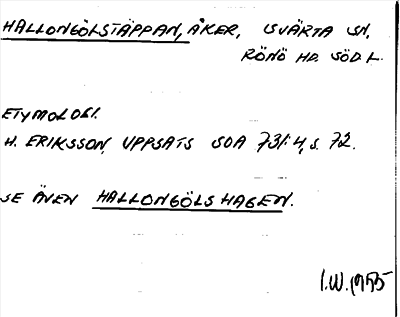 HALLONGÖLSTÄPPAN, ÅKER, SVÄRTA SN,
RÖNÖ HD. SÖD. L.
ETYMOLOGI.
H. ERIKSSON, UPPSATS SOA 731:4, S. 72.
SE ÄVEN HALLONGÖLSHAGEN.
I.W. 1955